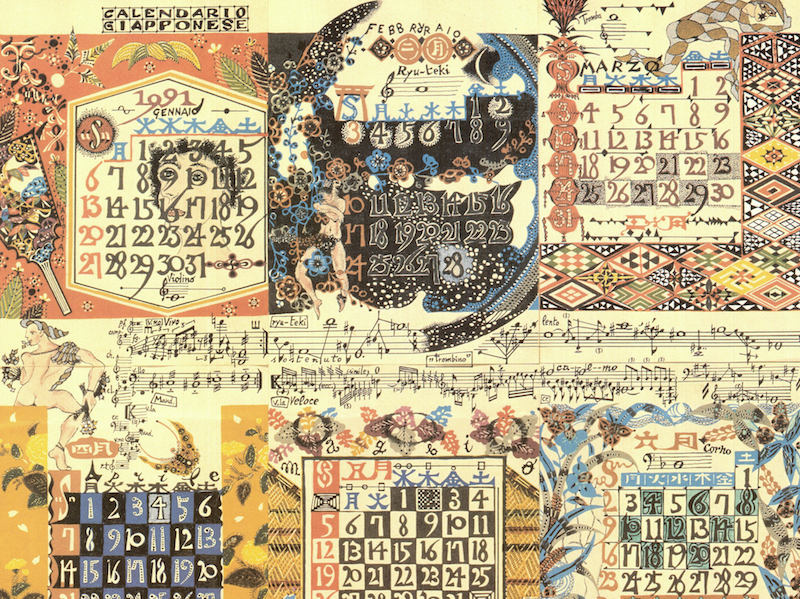 CALENDARIO
GIAPPONESE
1991
GENNAIO
S 火 水 木 金 土
月 1 2 3 4 5
6 7 8 9 10 11 12
13 14 15 16 17 18 19
20 21 22 23 24 25 26
27 28 29 30 31
Violino
FEBBRAIO
二月
Ryu-teki
S 月 火 水 木 金 土
1 2
3 4 5 6 7 8 9
10 11 12 13 14 15 16
17 18 19 20 21 22 23
24 25 26 27 28
Tromba
MARZO
S 月 火 水 木 金 土
1 2
3 4 5 6 7 8 9
10 11 12 13 14 15 16
17 18 19 20 21 22 23
24 25 26 27 28 29 30
31
三月
Vivo
ryu-teki
sostenuto
"trombino"
lento
Mand.
v.la Veloce
calmo
四月
Aprile
S 月 火 水 木 金 土
1 2 3 4 5 6
7 8 9 10 11 12 13
14 15 16 17 18 19 20
Maggio
S 五月
月 火 水 木 金 土
1 2 3 4
5 6 7 8 9 10 11
12 13 14 15 16 17 18
19 20 21 22 23 24 25
六月
Corno
S 月 火 水 木 金 土
1
2 3 4 5 6 7 8
9 10 11 12 13 14 15
16 17 18 19 20 21 22
23 24 25 26 27 28 29